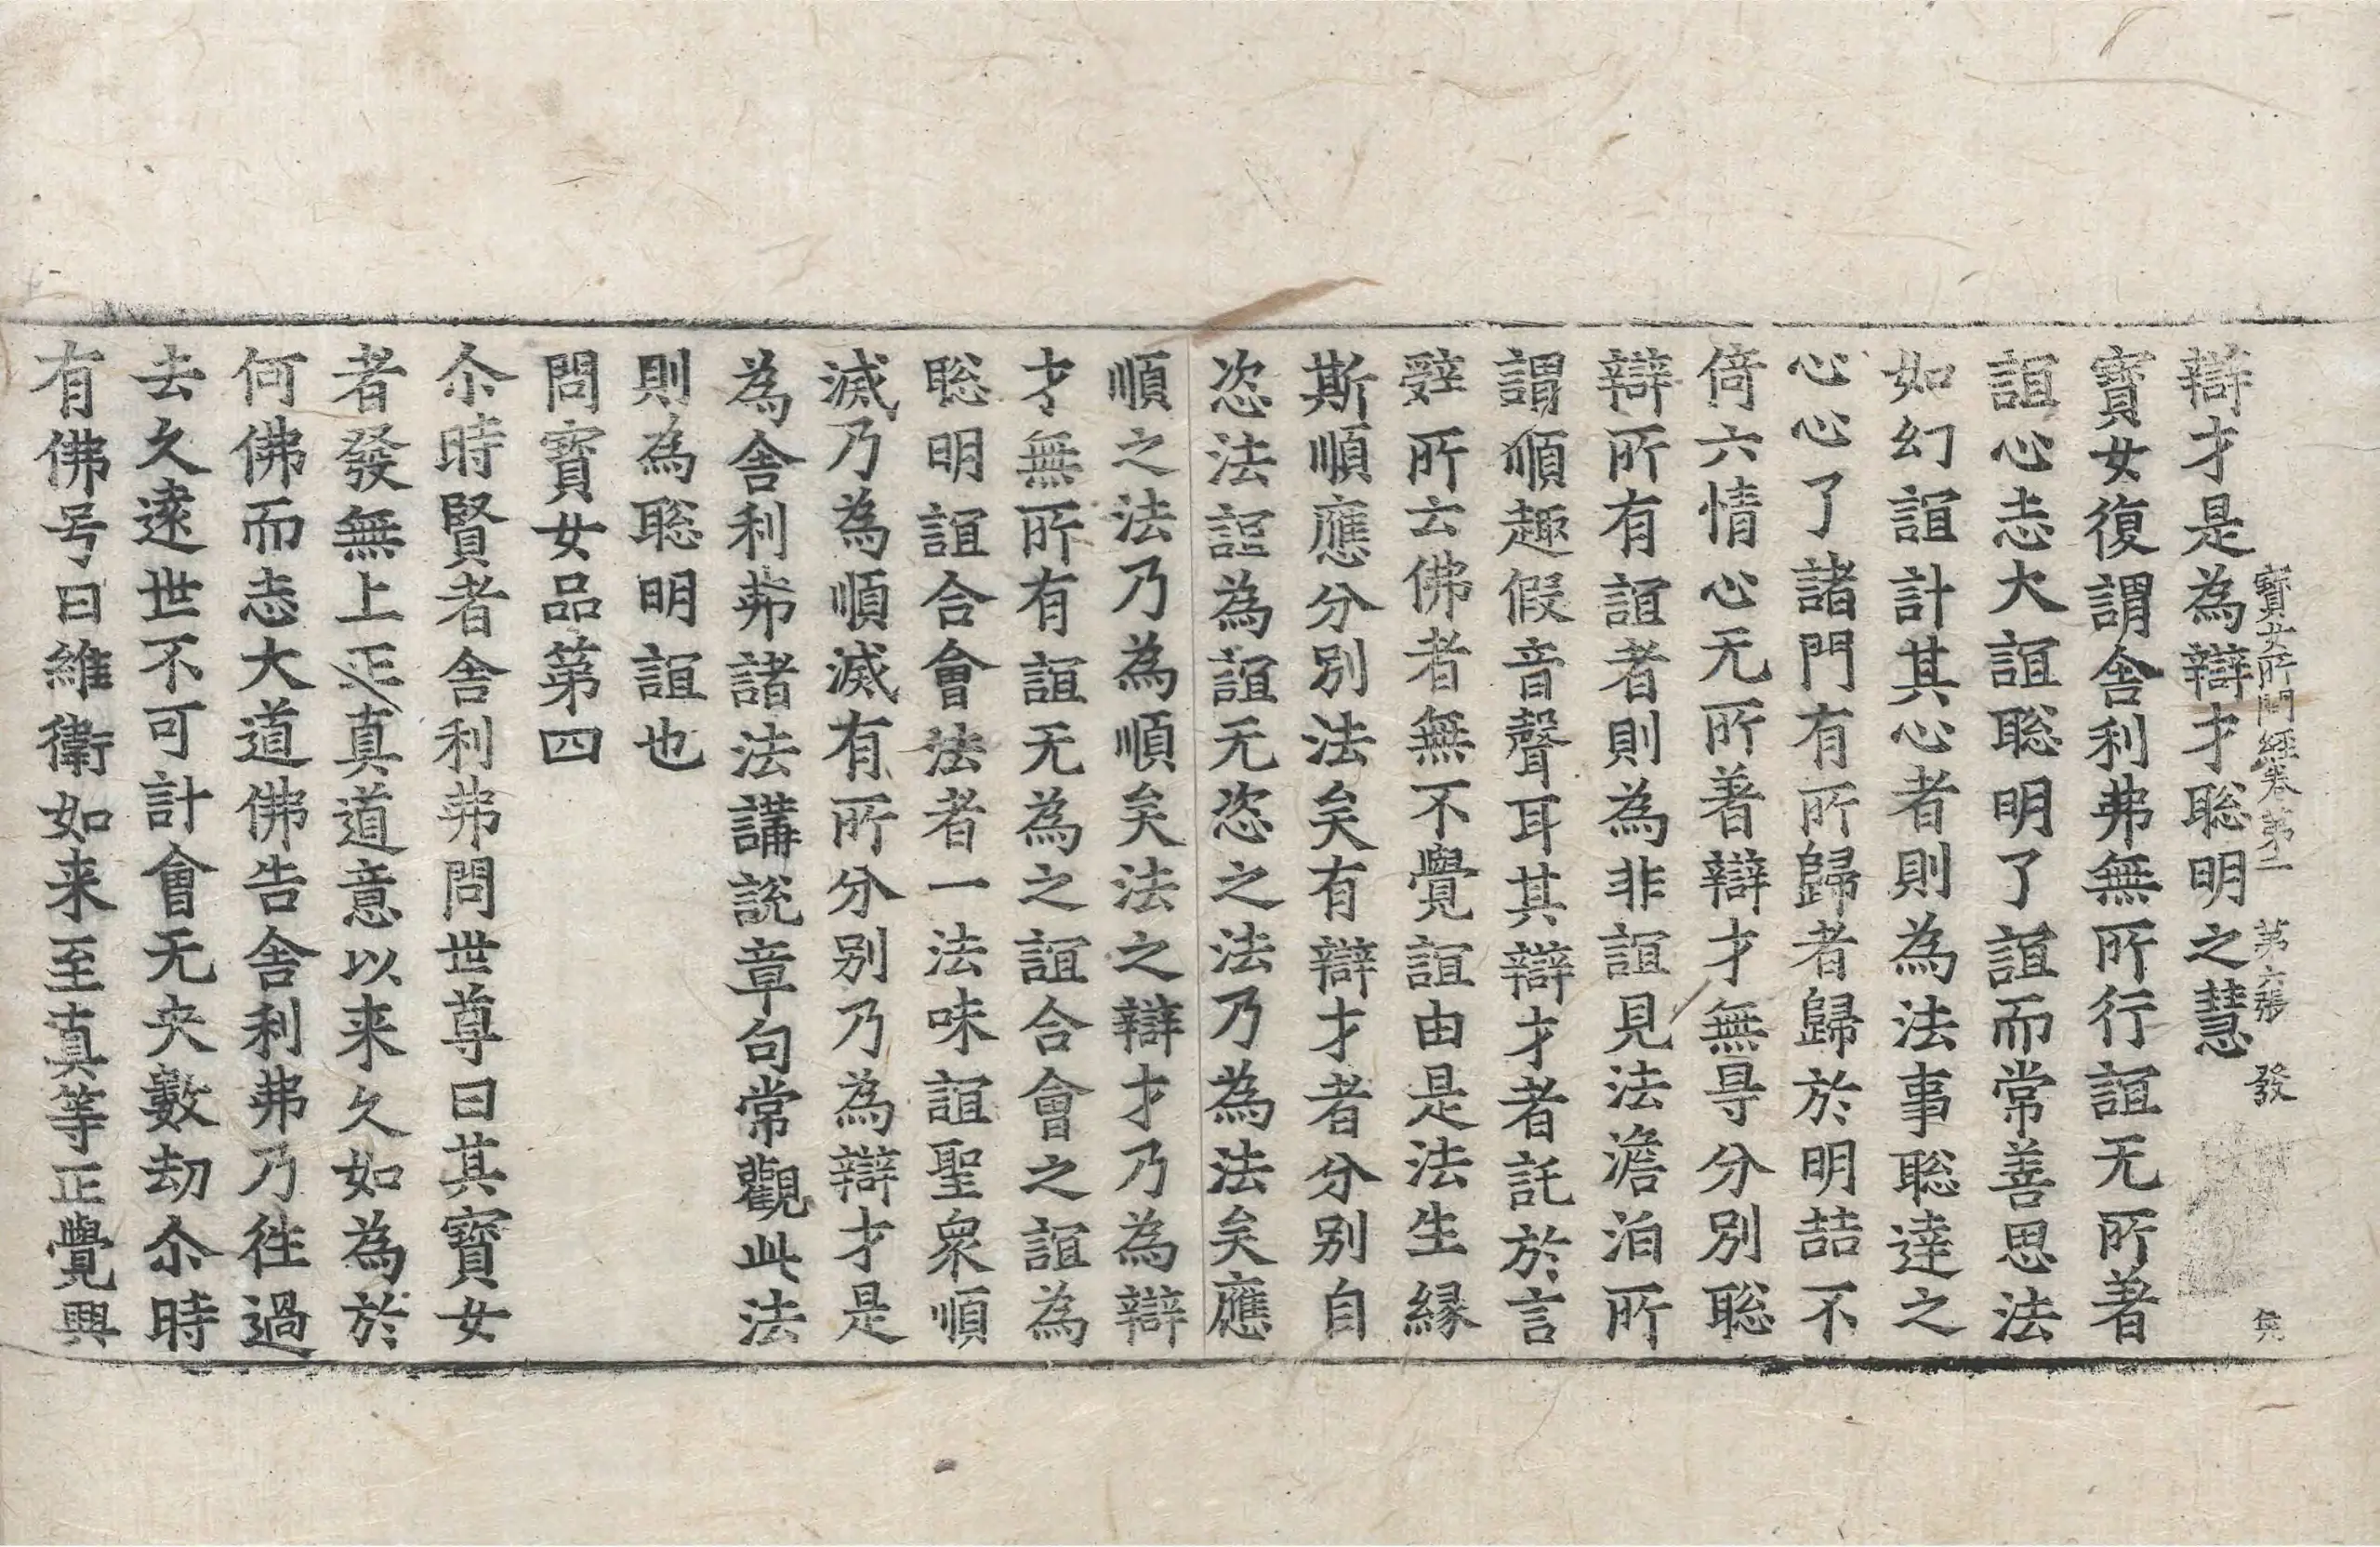 寶女所問經卷第二 第六張 發
辯才是為辯才聡明之慧
寶女復謂舍利弗無所行誼无所著
誼心志大誼聡明了誼而常善思法
如幻誼計其心者則為法事聡達之
心心了諸門有所歸者歸於明喆不
倚六情心无所著辯才無㝵分別聡
辯所有誼者則為非誼見法澹泊所
謂順趣假音聲耳其辯才者託於言
辤所云佛者無不覺誼由是法生緣
斯順應分別法矣有辯才者分別自
恣法誼為誼无恣之法乃為法矣應
順之法乃為順矣法之辯才乃為辯
才無所有誼无為之誼合會之誼為
聡明誼合會法者一法味誼聖眾順
滅乃為順滅有所分別乃為辯才是
為舍利弗諸法講說章句常觀此法
則為聡明誼也
問寶女品第四
尒時賢者舍利弗問世尊曰其寶女
者發無上正真道意以来久如為於
何佛而志大道佛告舍利弗乃徃過
去久遠世不可計會无央數劫尒時
有佛号曰維衛如来至真等正覺興